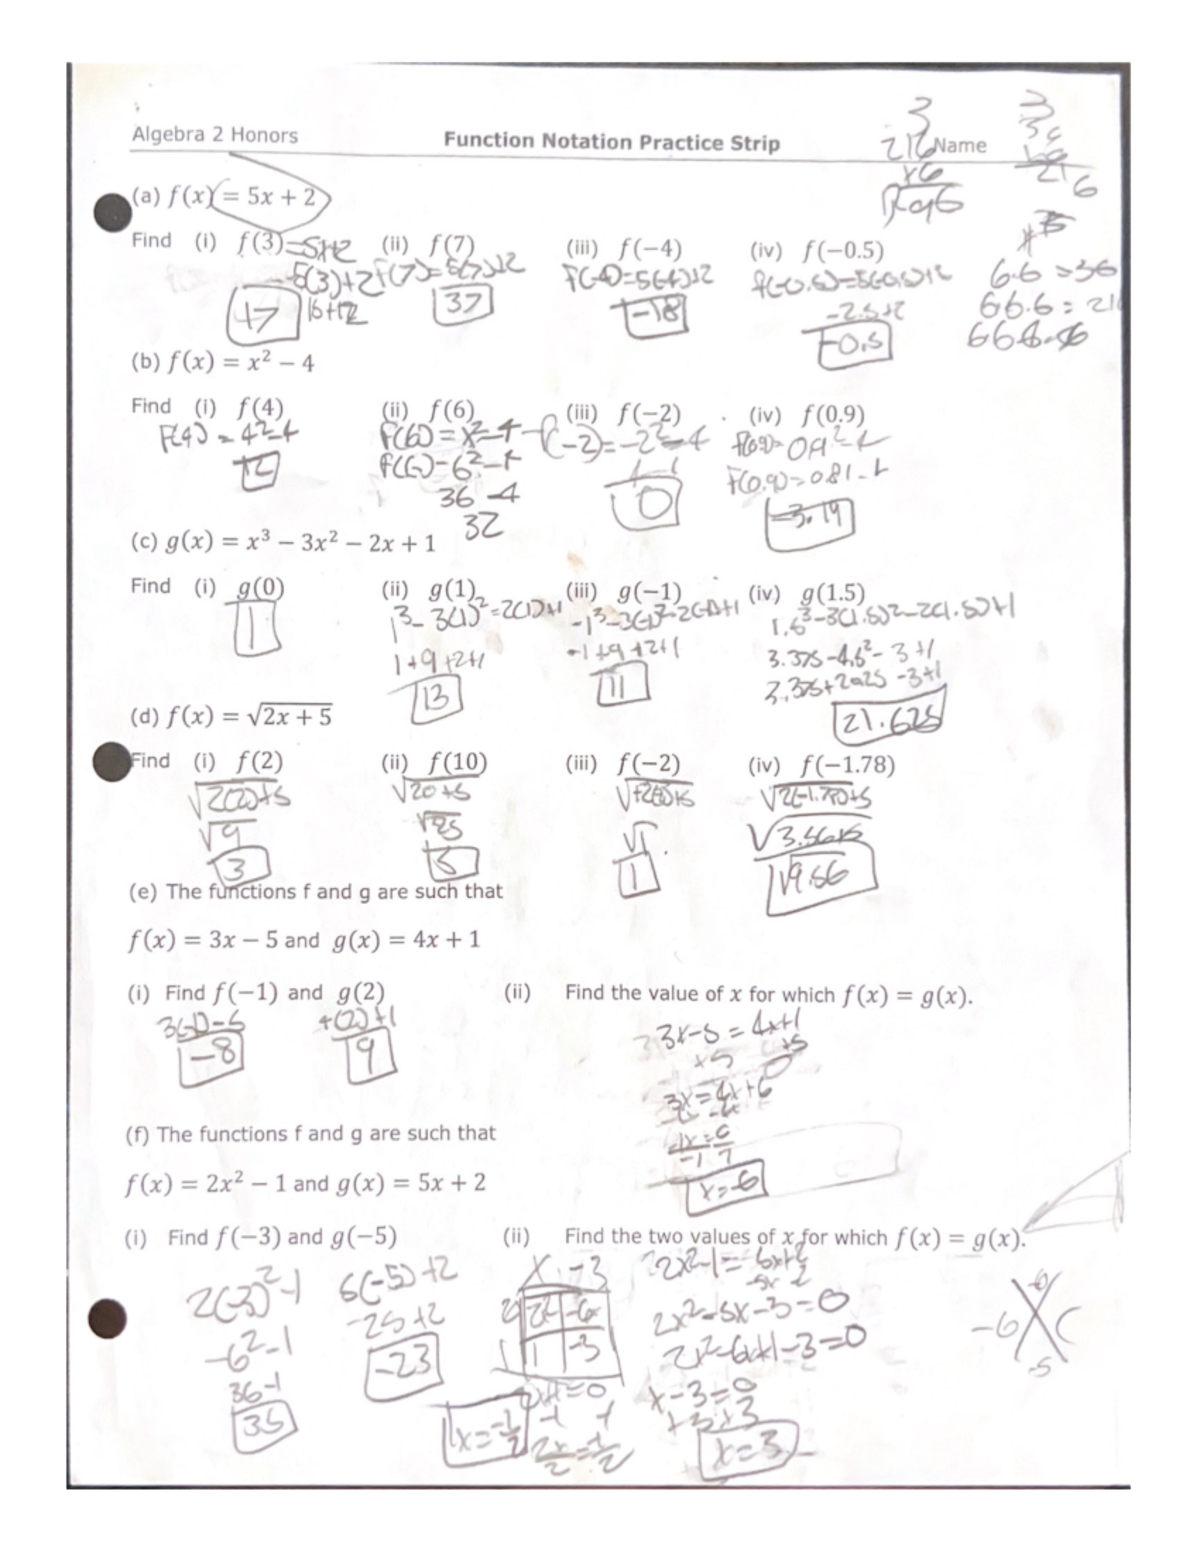 Algebra 2 Honors
Function Notation Practice Strip
Name
3
216
×6
3
36
×6
216
(a) f(x) = 5x + 2
Find (i) f(3) = 5x+2 (ii) f(7) (iii) f(−4) (iv) f(−0.5)
5(3)+2 f(7)=5(7)+2 f(-4)=5(-4)+2 f(-0.5)=5(-0.5)+2
15+2 37 -18 -2.5+2
17 -0.5
6·6 = 36
66·6 = 216
666·6
(b) f(x) = x² − 4
Find (i) f(4) (ii) f(6) (iii) f(−2) (iv) f(0.9)
f(4) = 4²-4 f(6) = x²-4 f(-2) = -2²-4 f(0.9)= 0.9²-4
12 f(6)=6²-4 4-4 f(0.9)=0.81-4
36-4 0 -3.19
32
(c) g(x) = x³ − 3x² − 2x + 1
Find (i) g(0) (ii) g(1) (iii) g(−1) (iv) g(1.5)
1 1³-3(1)²-2(1)+1 -1³-3(-1)²-2(-1)+1 1.5³-3(1.5)²-2(1.5)+1
1+9+2+1 -1+9+2+1 3.375-4.5²-3+1
13 11 3.375+20.25-3+1
21.625
(d) f(x) = √2x + 5
Find (i) f(2) (ii) f(10) (iii) f(−2) (iv) f(−1.78)
√2(2)+5 √20+5 √2(-1.78)+5
√9 √25 √1 √3.56+5
3 5 1 √9.56
(e) The functions f and g are such that
f(x) = 3x − 5 and g(x) = 4x + 1
(i) Find f(−1) and g(2) (ii) Find the value of x for which f(x) = g(x).
3(-1)-5 4(2)+1 3x-5 = 4x+1
-8 9 +5 +5
3x = 4x+6
-4x -4x
x=-6
(f) The functions f and g are such that
f(x) = 2x² − 1 and g(x) = 5x + 2
(i) Find f(−3) and g(−5) (ii) Find the two values of x for which f(x) = g(x).
2(-3)²-1 5(-5)+2 x -3 2x²-1 = 5x+2
-6²-1 -25+2 -5x -2
36-1 -23 2x²-5x-3=0
35 2x²-6x+1-3=0
1 -3 x-3=0
+3 +3
x=-1/2 x=3
-6
-5